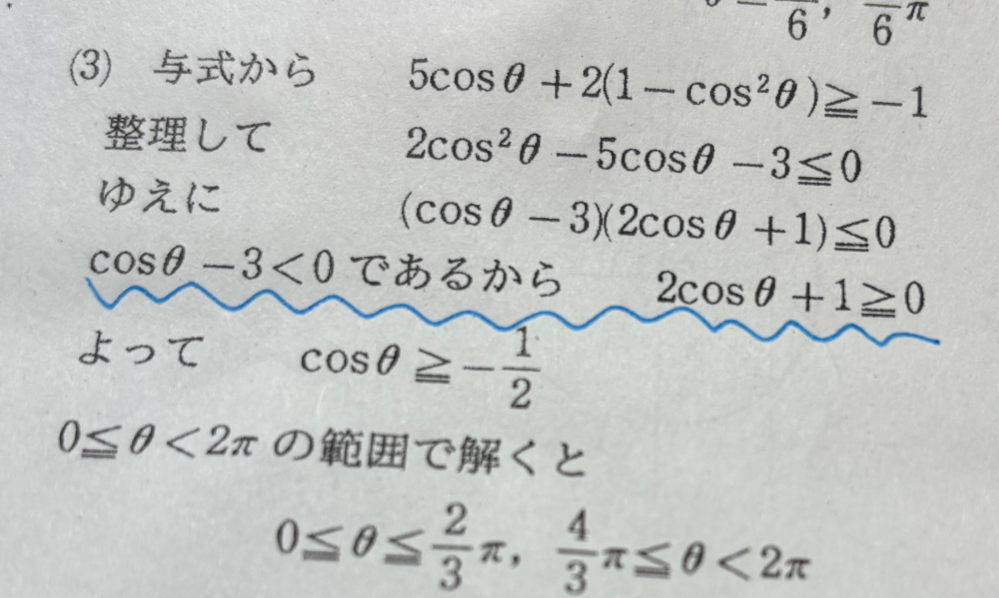 6, 6 π
(3) 与式から 5cosθ + 2(1 − cos²θ) ≧ −1
整理して 2cos²θ − 5cosθ − 3 ≦ 0
ゆえに (cosθ − 3)(2cosθ + 1) ≦ 0
cosθ − 3 < 0 であるから 2cosθ + 1 ≧ 0
よって cosθ ≧ −1/2
0 ≦ θ < 2π の範囲で解くと
0 ≦ θ ≦ 2/3 π, 4/3 π ≦ θ < 2π